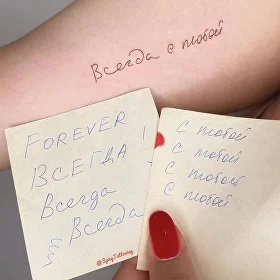 Всегда с тобой
FOREVER
ВСЕГДА !
Всегда
Всегда
@SpicyTattooing
с тобой
с тобой
с тобой
с тобой